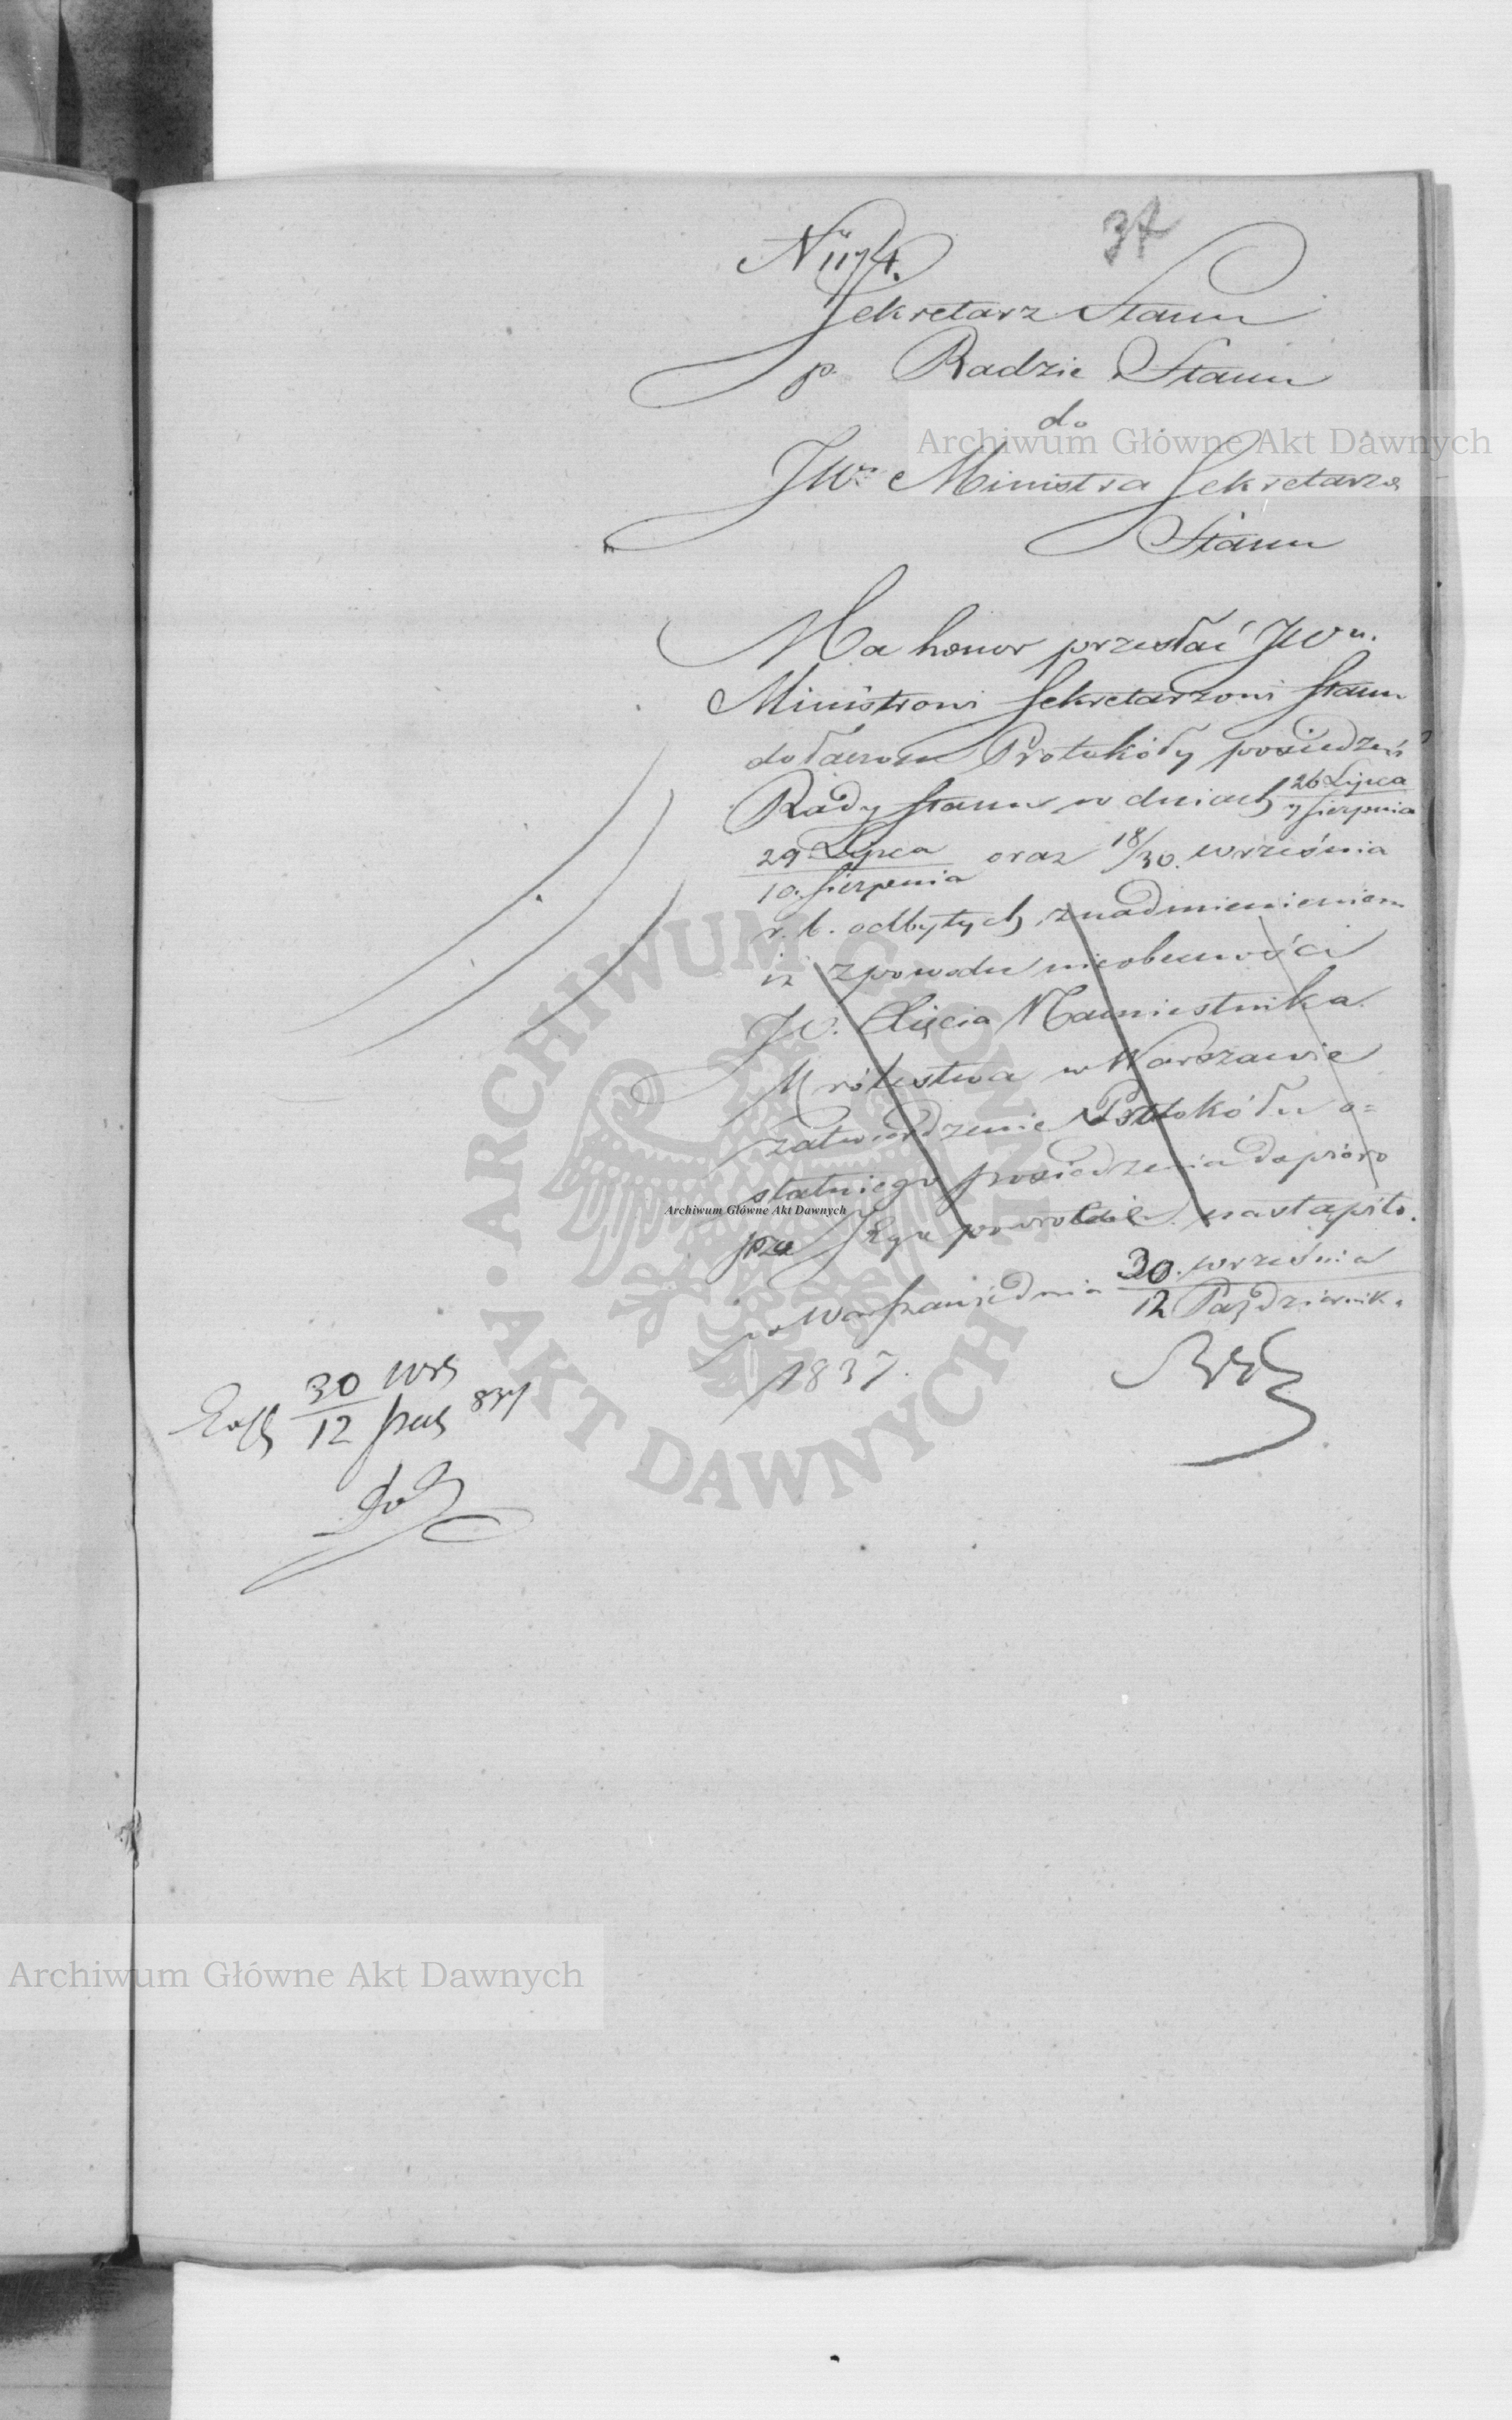 37
N 1174.
Sekretarz Stanu
p. Radzie Stanu
do
JWo Ministra Sekretarza
Stanu
Ma honor przesłać JWu.
Ministrowi Sekretarzowi Stanu
dołączone Protokóły posiedzeń
Rady Stanu w dniach 26 Lipca / 7 Sierpnia
29 Lipca / 10. Sierpnia oraz 18/30. września
r. b. odbytych, z nadmienieniem
iż z powodu nieobecności
JO. Xięcia Namiestnika
Królestwa w Warszawie
zatwierdzenie Protokółu o=
statniego posiedzenia dopiero
po Jego powrocie nastąpiło.
w Warszawie dnia 30. września / 12 Października
1837.
30 wrz / 12 paź 837
Archiwum Główne Akt Dawnych
Archiwum Główne Akt Dawnych
Archiwum Główne Akt Dawnych
ARCHIWUM GŁÓWNE · AKT DAWNYCH ·